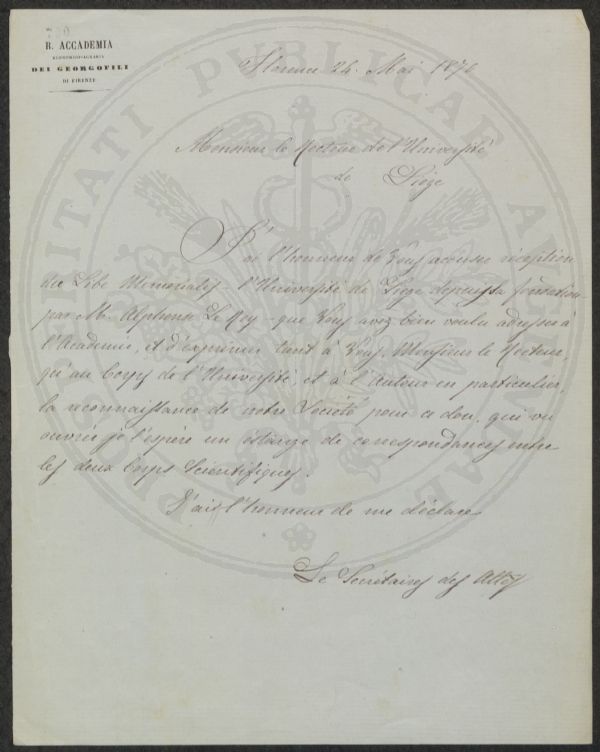 R. ACCADEMIA
ECONOMICO-AGRARIA
DEI GEORGOFILI
DI FIRENZE
Florence 24. Mai 1876
Monsieur le Recteur de l'Université
de Liège
J'ai l'honneur de Vous accuser réception
du Libe Memorialis – l'Université de Liège depuis sa fondation
par M. Alphonse Le Roy – que Vous avez bien voulu adresser à
l'Académie, et d'exprimer tant à Vous, Monsieur le Recteur,
qu'au Corps de l'Université et à l'auteur en particulier,
la reconnaissance de notre Société pour ce don, qui va
ouvrir je l'espère un échange de correspondances entre
les deux Corps Scientifiques.
J'ai l'honneur de me déclarer
Le Secrétaires des Actes
PROSPERITATI PUBLICAE AUGENDAE